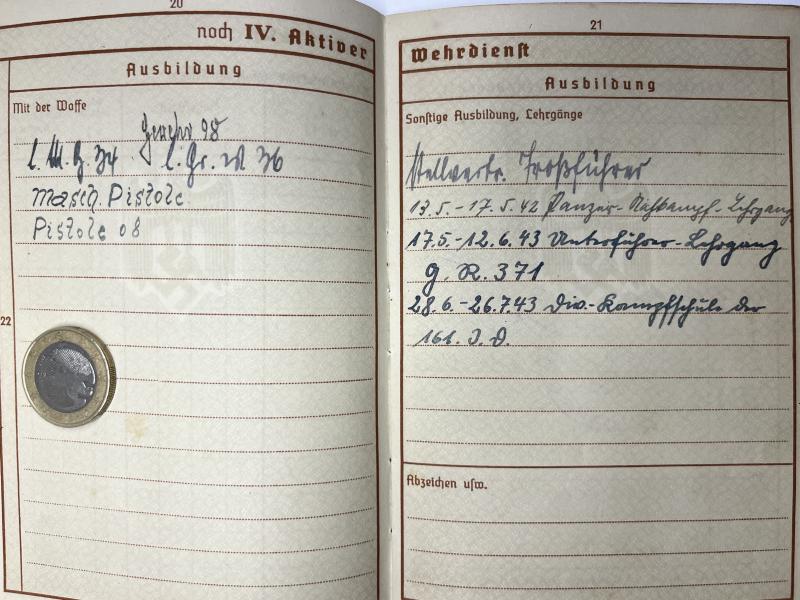 20
noch IV. Aktiver
Ausbildung
Mit der Waffe
Gewehr 98
l. M. G. 34 l. Gr. W 36
Masch. Pistole
Pistole 08
22
21
Wehrdienst
Ausbildung
Sonstige Ausbildung, Lehrgänge
Stellvertr. Troßführer
13.5.-17.5.42 Panzer-Nahkampf-Lehrgang
17.5.-12.6.43 Unterführer-Lehrgang
G. R. 371
28.6.-26.7.43 Div.-Kampfschule der
161. I. D.
Abzeichen usw.